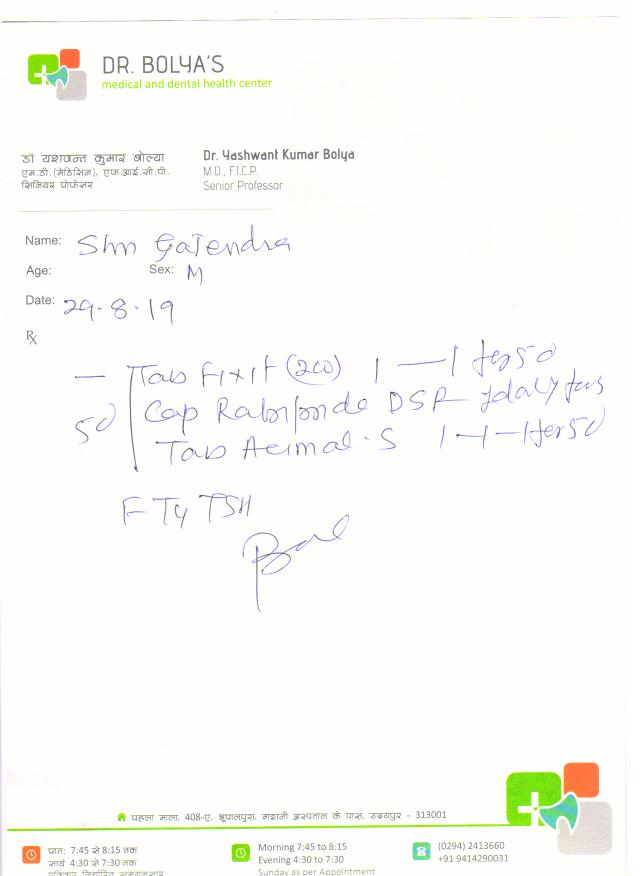 DR. BOLYA'S
medical and dental health center
डॉ यशवन्त कुमार बोल्या
एम.डी. (मेडिसिन), एफ.आई.सी.पी.
सिनियर प्रोफेसर
Dr. Yashwant Kumar Bolya
M.D., F.I.C.P.
Senior Professor
Name: Shri Gajendra
Age: Sex: M
Date: 29.8.19
Rx
— Tab Fixit (200) 1 — 1
50 Cap DSR
Tab S 1 -1 -1
F T4 TSH
पहला माला, 408-ए, भूपालपुरा, गट्टानी अस्पताल के पास, उदयपुर - 313001
प्रात: 7:45 से 8:15 तक
सायं 4:30 से 7:30 तक
Morning 7:45 to 8:15
Evening 4:30 to 7:30
Sunday as per Appointment
(0294) 2413660
+91 9414290031